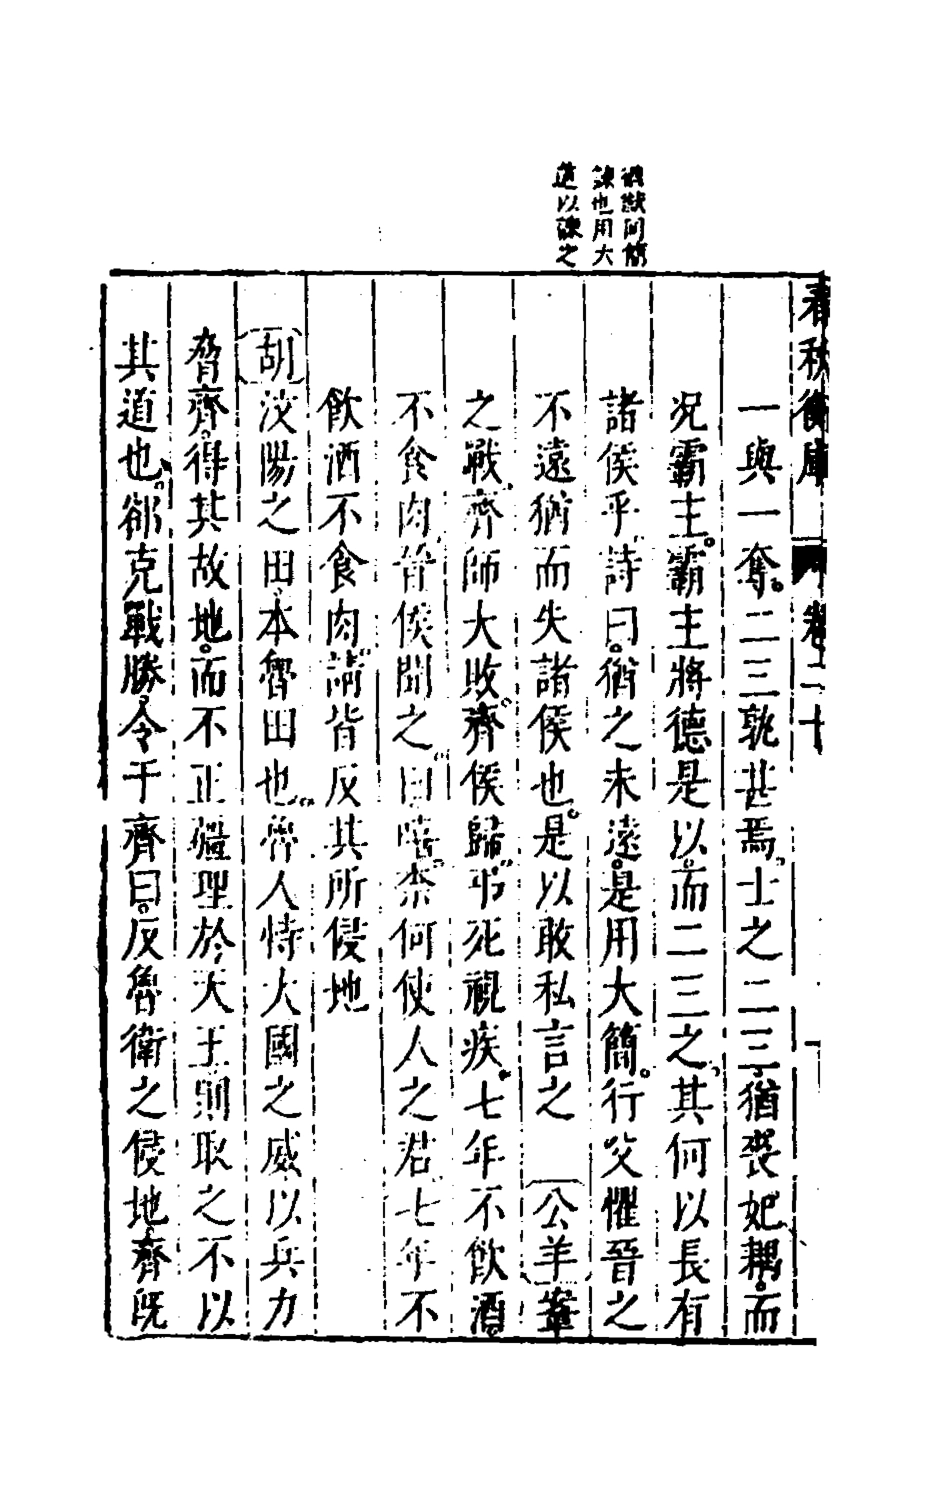 猶猷同簡
諫也用大
道以諫之
春秋衡庫 卷二十
一與一奪二三孰甚焉士之二三猶喪妃耦而
况霸主霸主將德是以而二三之其何以長有
諸侯乎詩曰猶之未遠是用大簡行父懼晉之
不遠猶而失諸侯也是以敢私言之 公羊鞌
之戰齊師大敗齊侯歸弔死視疾七年不飲酒
不食肉晉侯聞之曰嘻柰何使人之君七年不
飲酒不食肉請皆反其所侵地
胡汶陽之田本魯田也魯人恃大國之威以兵力
脅齊得其故地而不正疆理於天王則取之不以
其道也郤克戰勝令于齊曰反魯衛之侵地齊既